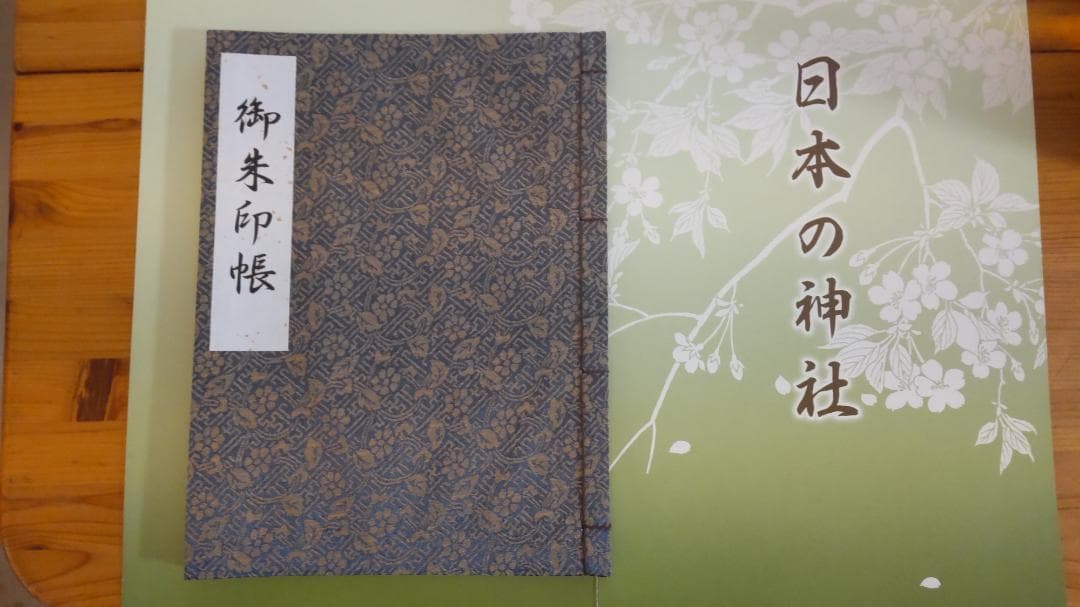 御朱印帳
日本の神社